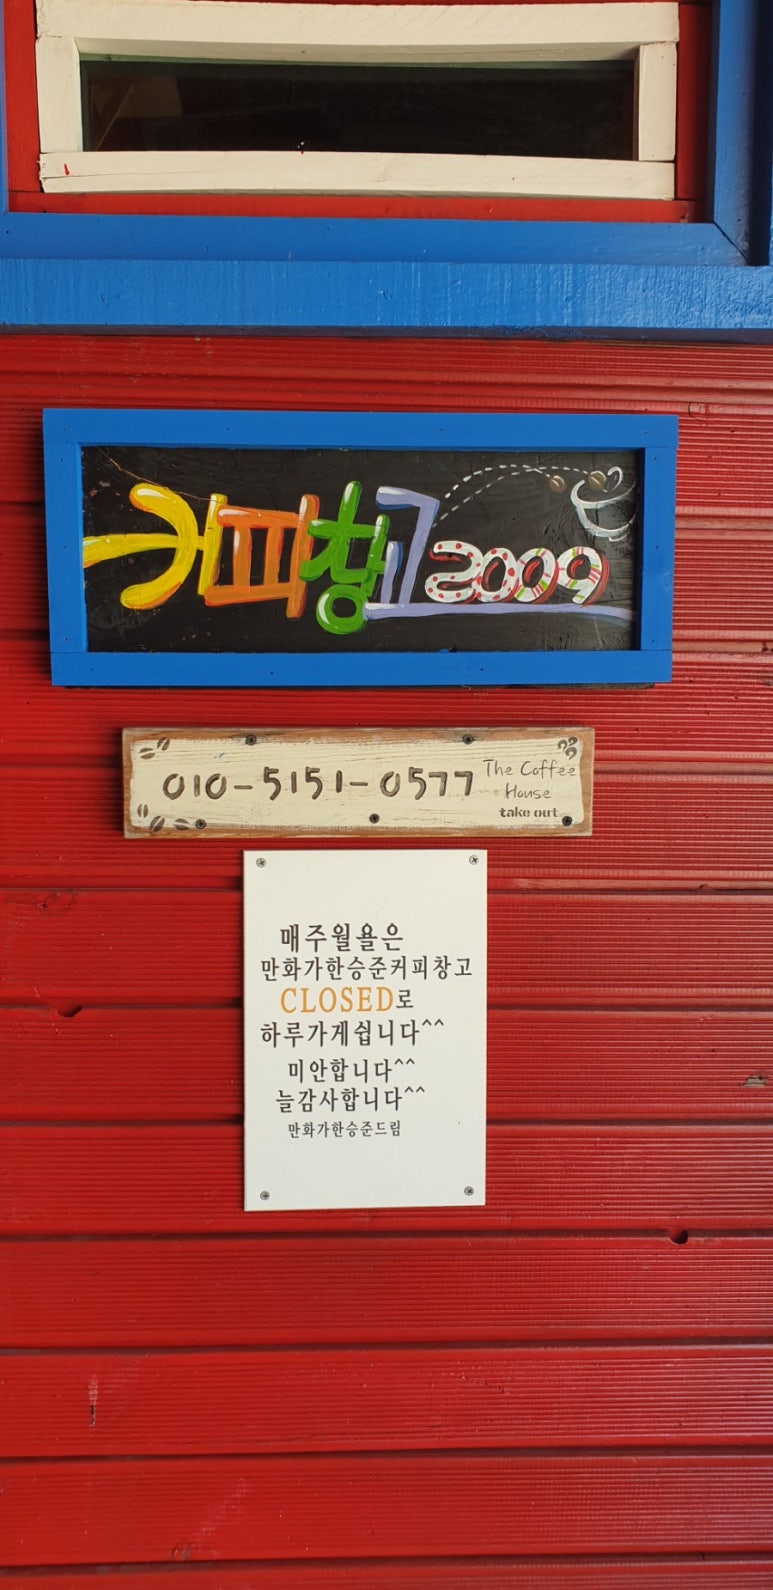 커피창고2009
010-5151-0577
The Coffee
House
take out
매주월욜은
만화가한승준커피창고
CLOSED로
하루가게쉽니다^^
미안합니다^^
늘감사합니다^^
만화가한승준드림